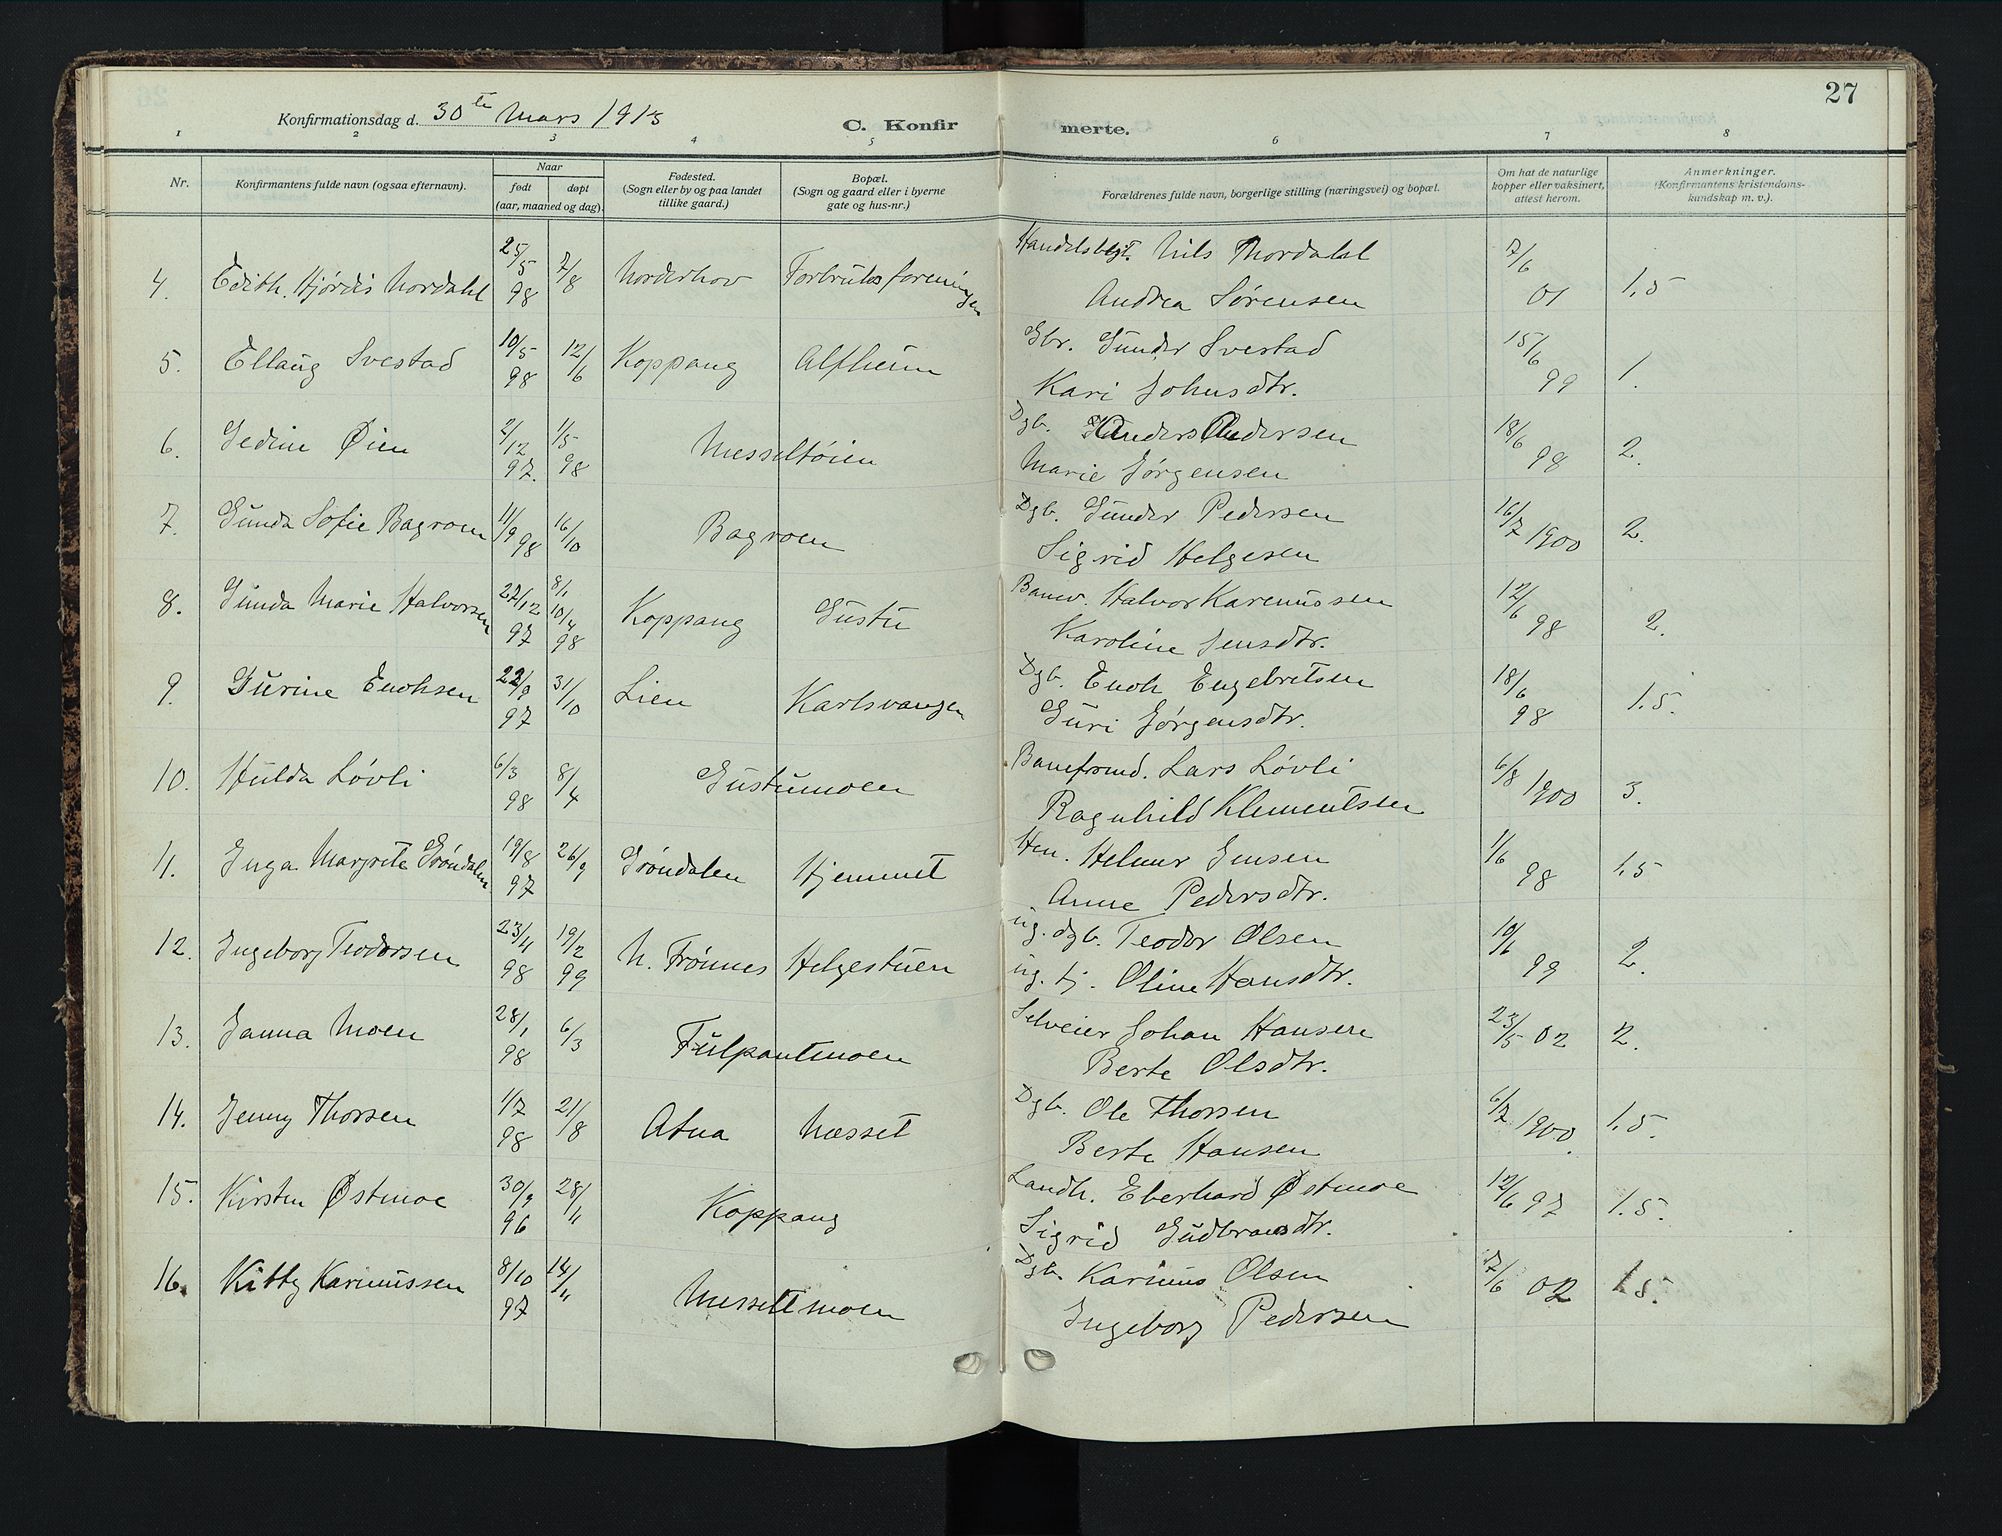 27
Konfirmationsdag d. 30te Mars 1913
C. Konfirmerte.
1 2 3 4 5 6 7 8
Nr. Konfirmantens fulde navn (ogsaa efternavn). Naar født døpt (aar, maaned og dag). Fødested. (Sogn eller by og paa landet tillike gaard.) Bopæl. (Sogn og gaard eller i byerne gate og hus-nr.) Forældrenes fulde navn, borgerlige stilling (næringsvei) og bopæl. Om hat de naturlige kopper eller vaksinert, attest herom. Anmerkninger. (Konfirmantens kristendomskundskap m. v.).
4. Edith Hjørdis Nordahl 25/5 98 7/8 Norderhov Forbruksforeningen Handelsbest. Nils Nordahl 7/6 01 1,5
Andrea Sørensen
5. Ellaug Svestad 10/5 98 12/6 Koppang Alfheim Gbr. Gunder Svestad 15/6 99 1.
Kari Johnsdtr.
6. Gedine Øien 2/12 97. 1/5 98 Messeltøien Dgb. Anders Andersen 18/6 98 2.
Marie Jørgensen
7. Gunda Sofie Bagroen 11/9 98 16/10 Bagroen Dgb. Gunder Pedersen 16/7 1900 2.
Sigrid Helgesen
8. Gunda Marie Halvorsen 27/12 97 8/1 10/4 98 Koppang Gustu Banev. Halvor Karenussen 12/6 98 2.
Karoline Jensdtr.
9. Gurine Enoksen 22/9 97 31/10 Lien Karlsvangen Dgb. Enok Engebretsen 18/6 98 1.5.
Guri Jørgensdtr.
10. Hulda Løvli 6/3 98 8/4 Gustumoen Baneformd. Lars Løvli 6/8 1900 3.
Ragnhild Klementsen
11. Inga Margrete Grøndalen 19/8 97 26/9 Grøndalen Hjemmet Helmer Jensen 1/6 98 1.5
Anne Pedersdtr.
12. Ingeborg Teodorsen 23/4 98 19/2 99 N. Trønnes Helgestuen ug. dgb. Teodor Olsen 10/6 99 2.
ug. tj. Oline Hansdtr.
13. Janna Moen 28/1 98 6/3 Fulpantmoen Selveier Johan Hansen 23/5 02 2.
Berte Olsdtr.
14. Jenny Thorsen 1/7 98 21/8 Atna Næsset Dgb. Ole Thorsen 6/7 1900. 1.5.
Berte Hansen
15. Kirsten Østmoe 30/9 96 28/11 Koppang Landh. Eberhard Østmoe 12/6 97 1.5.
Sigrid Gudbrandsdtr.
16. Kitty Karinussen 8/10 97 14/11 Messeltmoen Dgb. Karinus Olsen 7/6 02 1.5.
Ingeborg Pedersen